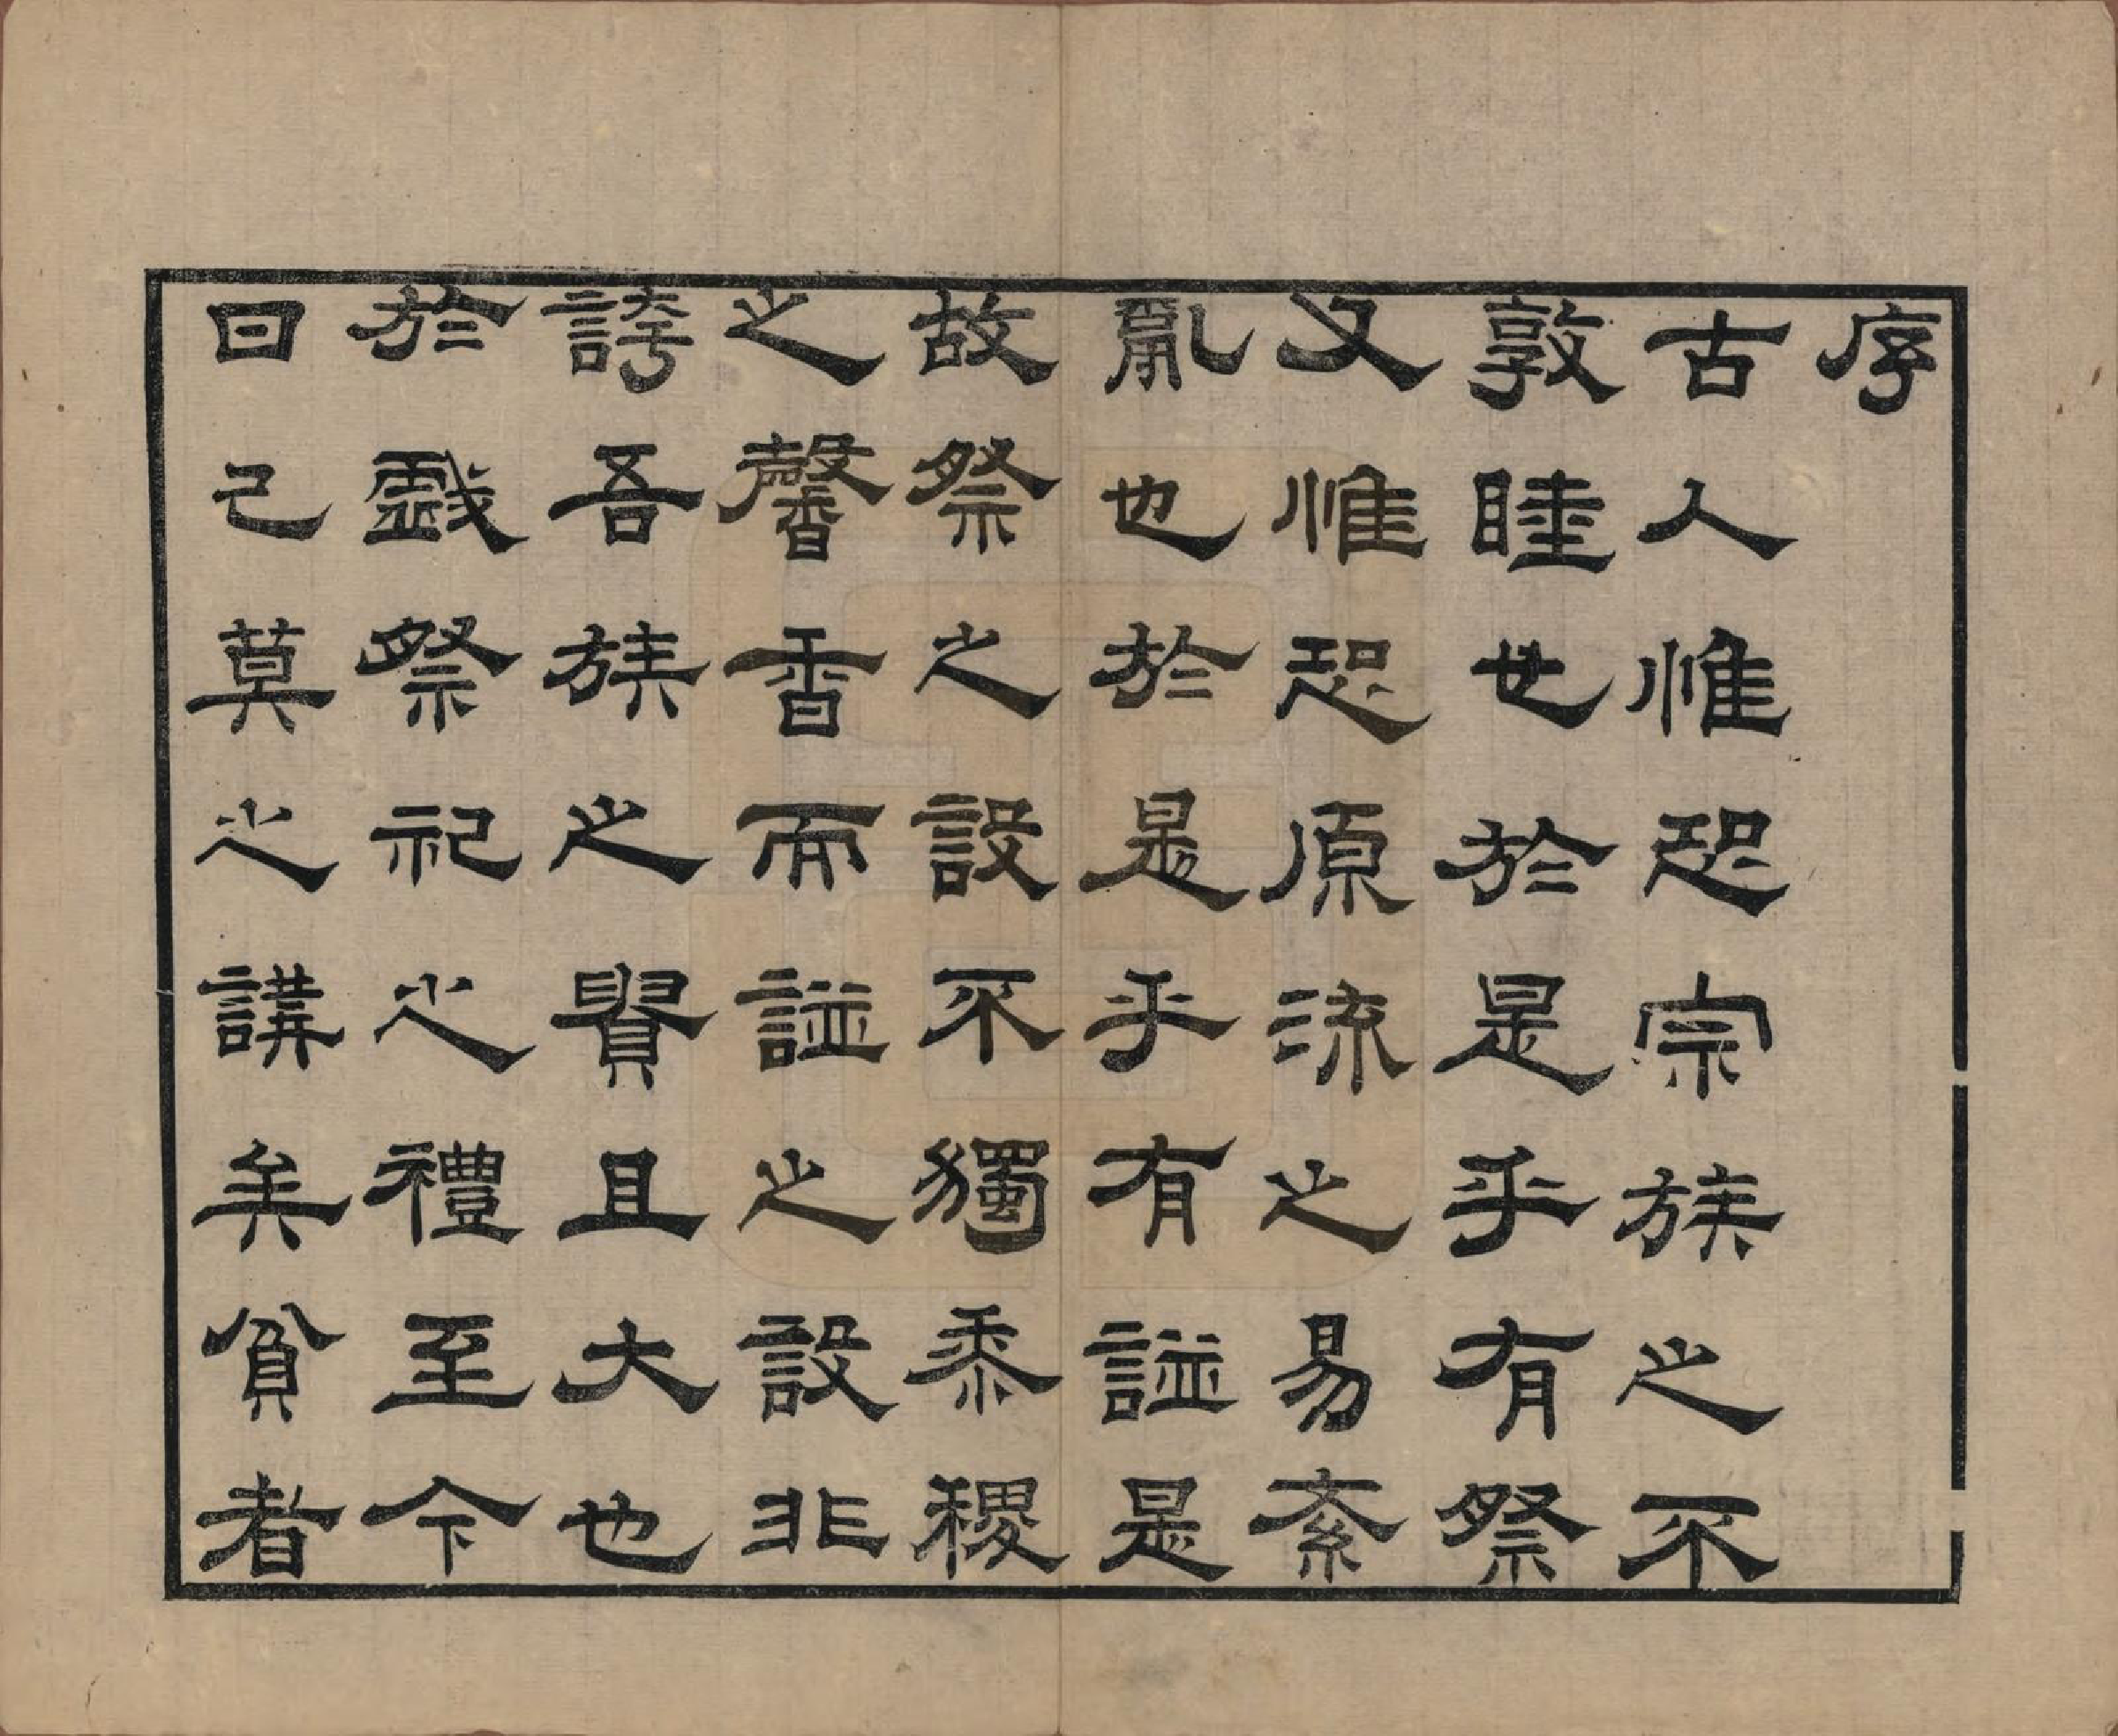 序
古人惟恐宗族之不
敦睦也於是乎有祭
又惟恐原流之易紊
亂也於是乎有譜是
故祭之設不獨黍稷
之馨香而譜之設非
誇吾族之貴且大也
於戲祭祀之禮至今
日已莫之講矣貧者